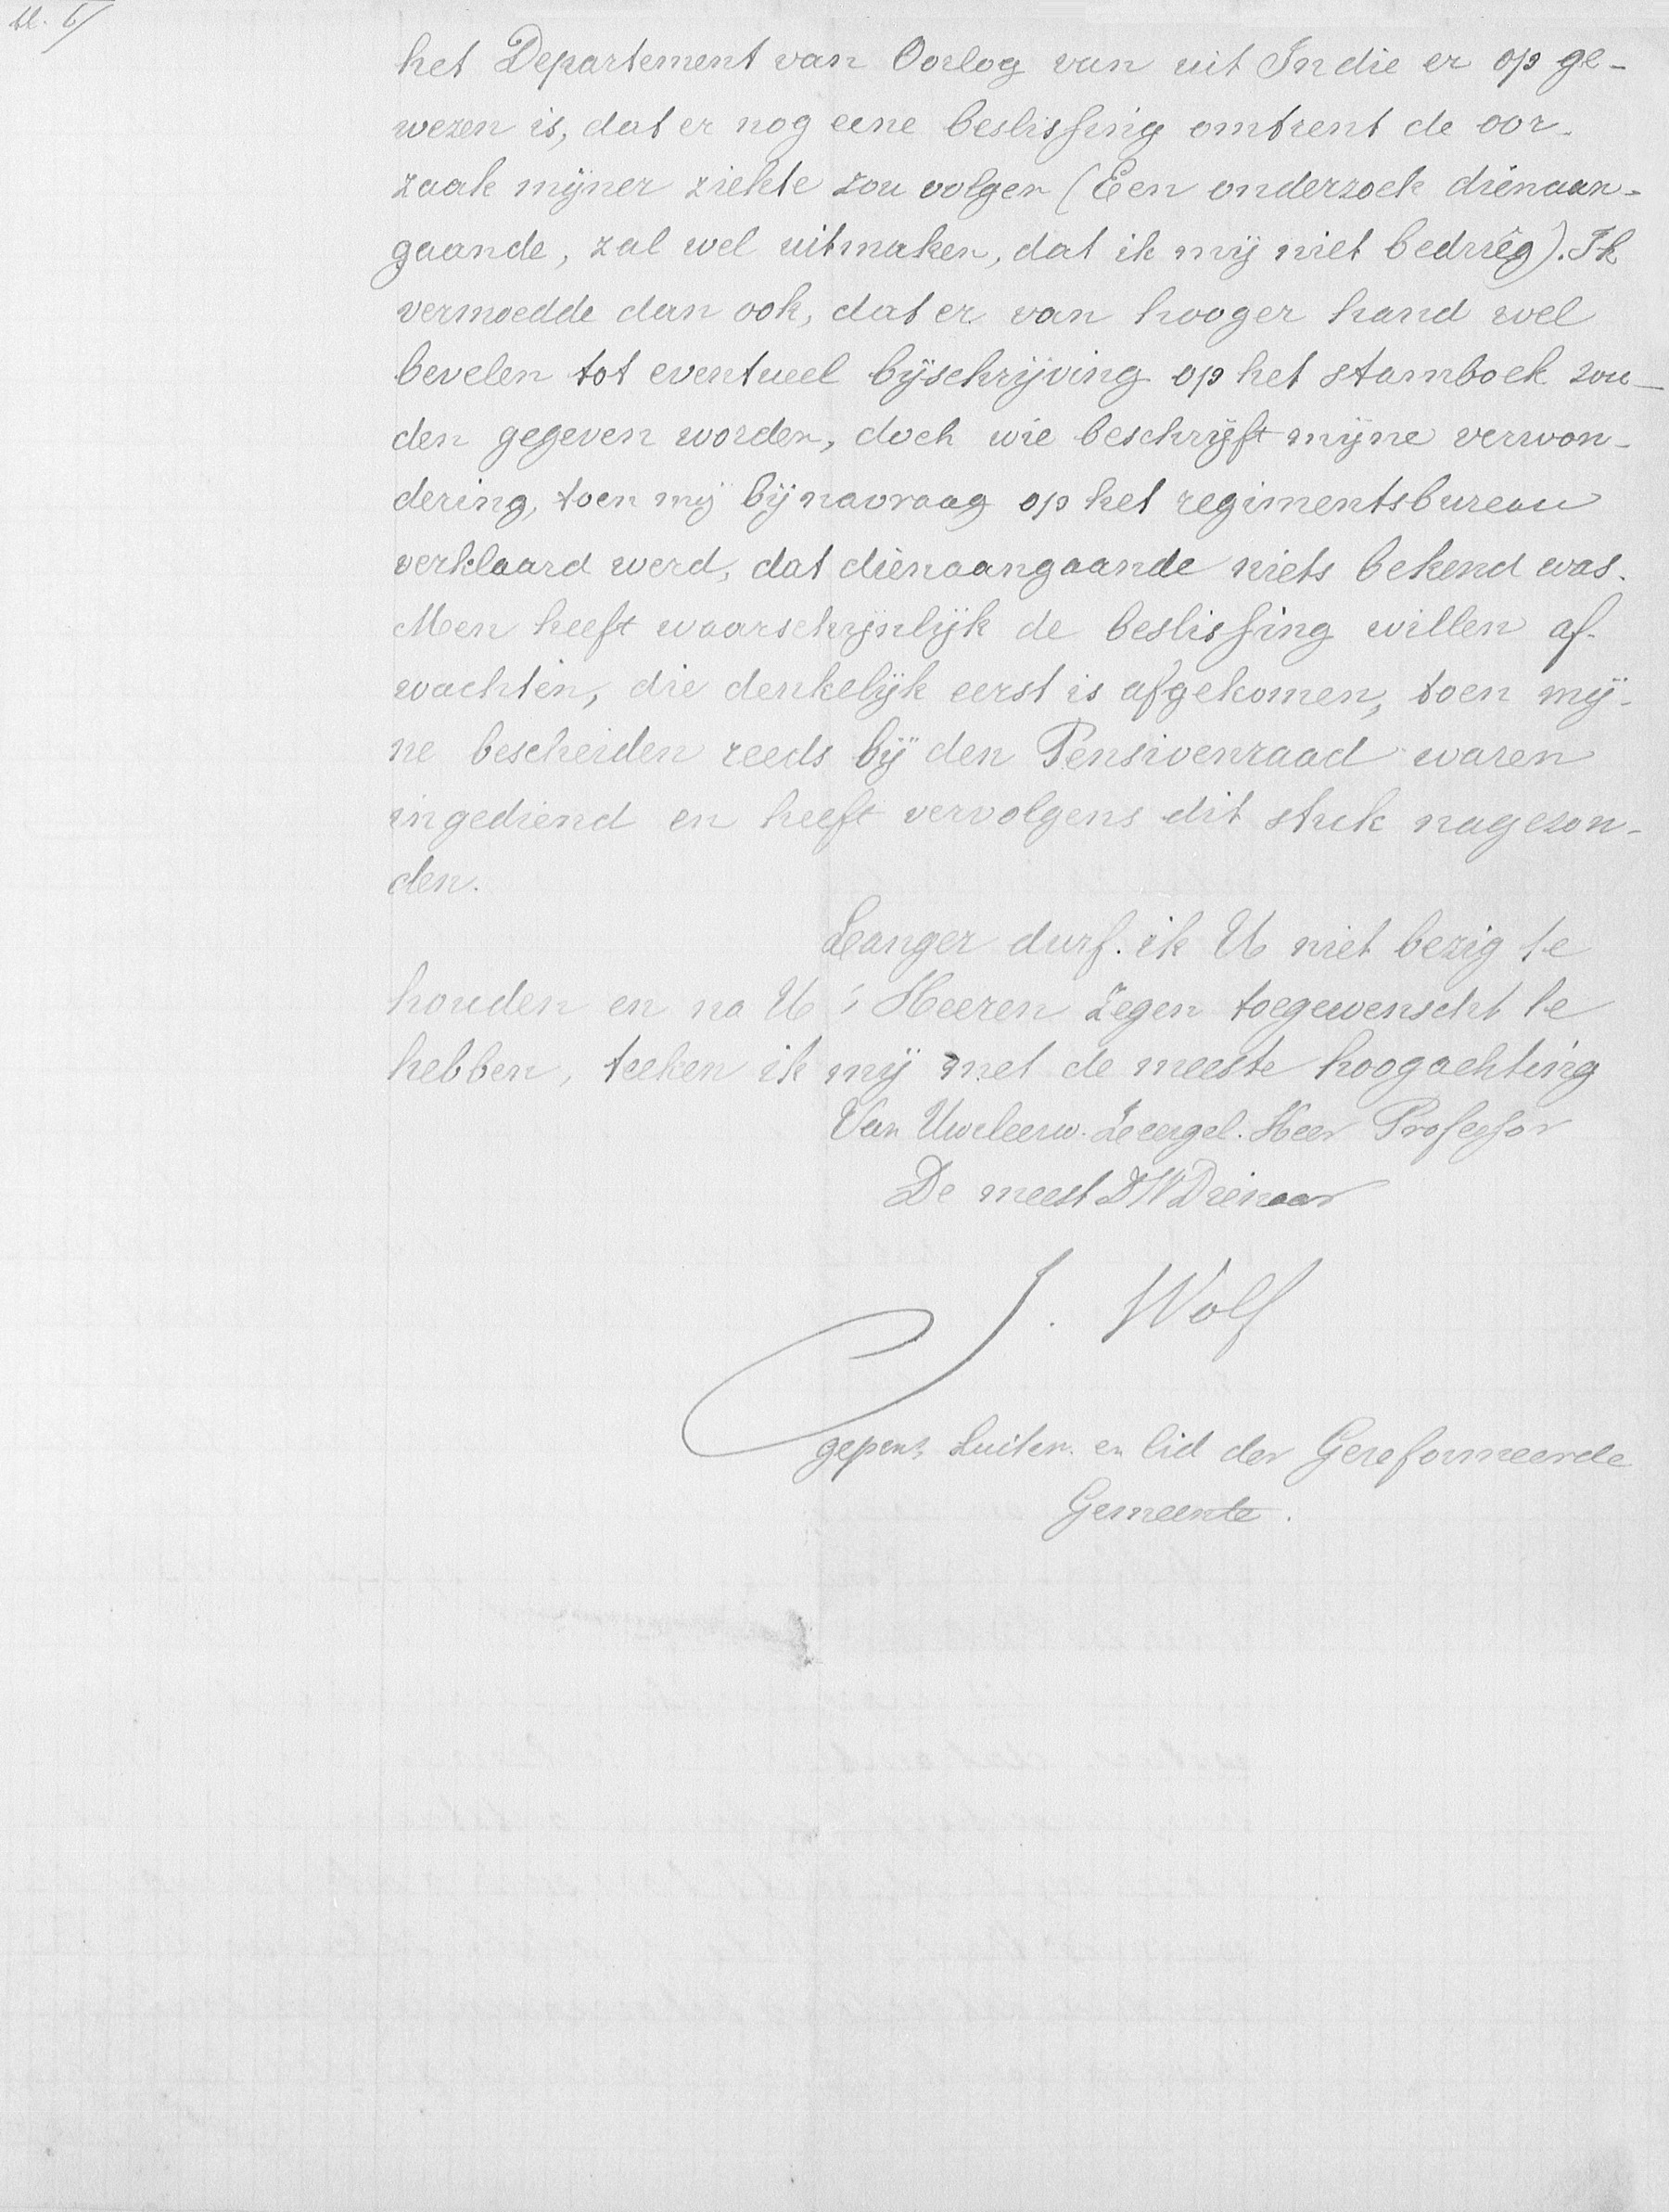 bl. 6/
het Departement van Oorlog van uit Indie er op ge-
wezen is, dat er nog eene beslissing omtrent de oor-
zaak mijner ziekte zou volgen (Een onderzoek dienaan-
gaande, zal wel uitmaken, dat ik mij niet bedrieg). Ik
vermoedde dan ook, dat er van hooger hand wel
bevelen tot eventueel bijschrijving op het stamboek zou-
den gegeven worden, doch wie beschrijft mijne verwon-
dering, toen mij bij navraag op het regimentsbureau
verklaard werd, dat dienaangaande niets bekend was.
Men heeft waarschijnlijk de beslissing willen af-
wachten, die denkelijk eerst is afgekomen, toen mij-
ne bescheiden reeds bij den Pensioenraad waren
ingediend en heeft vervolgens dit stuk nagezon-
den.
Langer durf ik U niet bezig te
houden en na U 's Heeren Zegen toegewenscht te
hebben, teeken ik mij met de meeste hoogachting
Van Uweleerw. Zeergel. Heer Professor
De meest DWDienaar
J. Wolf
gepens. Luiten. en lid der Gereformeerde
Gemeente.